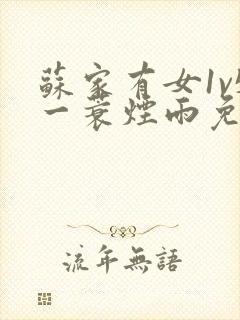 蘇家有女1v
一蓑煙雨免
流年無語